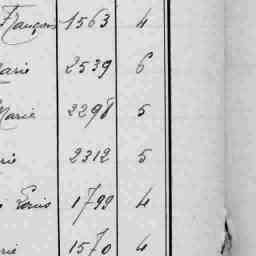 François 1563 4
Marie 2539 6
Marie 2298 5
rie 2312 5
Louis 1799 4
rie 1570 4